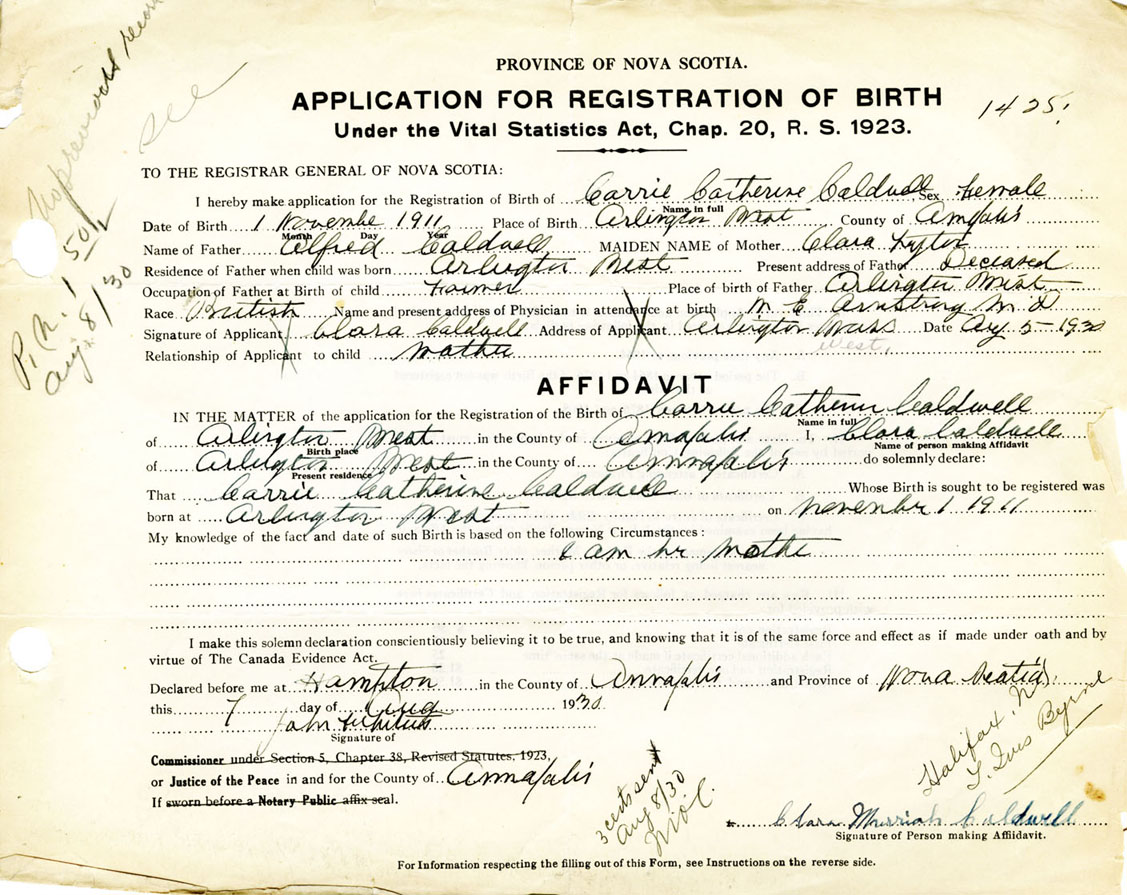 No previous record
see
P.N. 1 50
Aug. 8/30
PROVINCE OF NOVA SCOTIA.
APPLICATION FOR REGISTRATION OF BIRTH
1425.
Under the Vital Statistics Act, Chap. 20, R. S. 1923.
TO THE REGISTRAR GENERAL OF NOVA SCOTIA:
I hereby make application for the Registration of Birth of Carrie Catherine Caldwell Sex female
Name in full
Date of Birth 1 Novembe 1911 Place of Birth Arlington West County of Annapolis
Month Day Year
Name of Father Alfred Caldwell MAIDEN NAME of Mother Clara
Residence of Father when child was born Arlington West Present address of Father Deceased
Occupation of Father at Birth of child Farmer Place of birth of Father Arlington West
Race British Name and present address of Physician in attendance at birth M E Armstrong M D
Signature of Applicant Clara Caldwell Address of Applicant Arlington Date Aug 5-1930
West.
Relationship of Applicant to child Mother
AFFIDAVIT
IN THE MATTER of the application for the Registration of the Birth of Carrie Catherine Caldwell
Name in full
of Arlington West in the County of Annapolis I, Clara Caldwell
Birth place Name of person making Affidavit
of Arlington West in the County of Annapolis do solemnly declare:
Present residence
That Carrie Catherine Caldwell Whose Birth is sought to be registered was
born at Arlington West on November 1 1911
My knowledge of the fact and date of such Birth is based on the following Circumstances:
I am hr Mothe
I make this solemn declaration conscientiously believing it to be true, and knowing that it is of the same force and effect as if made under oath and by
virtue of The Canada Evidence Act.
Declared before me at Hampton in the County of Annapolis and Province of Nova Scotia
this 7 day of Aug 1930.
John
Signature of
Commissioner under Section 5, Chapter 38, Revised Statutes, 1923,
or Justice of the Peace in and for the County of Annapolis
If sworn before a Notary Public affix seal.
3 cents sent
Aug 8/30
Halifax, N.S.
L. Ives Byrne
Clara Caldwell
Signature of Person making Affidavit.
For Information respecting the filling out of this Form, see Instructions on the reverse side.